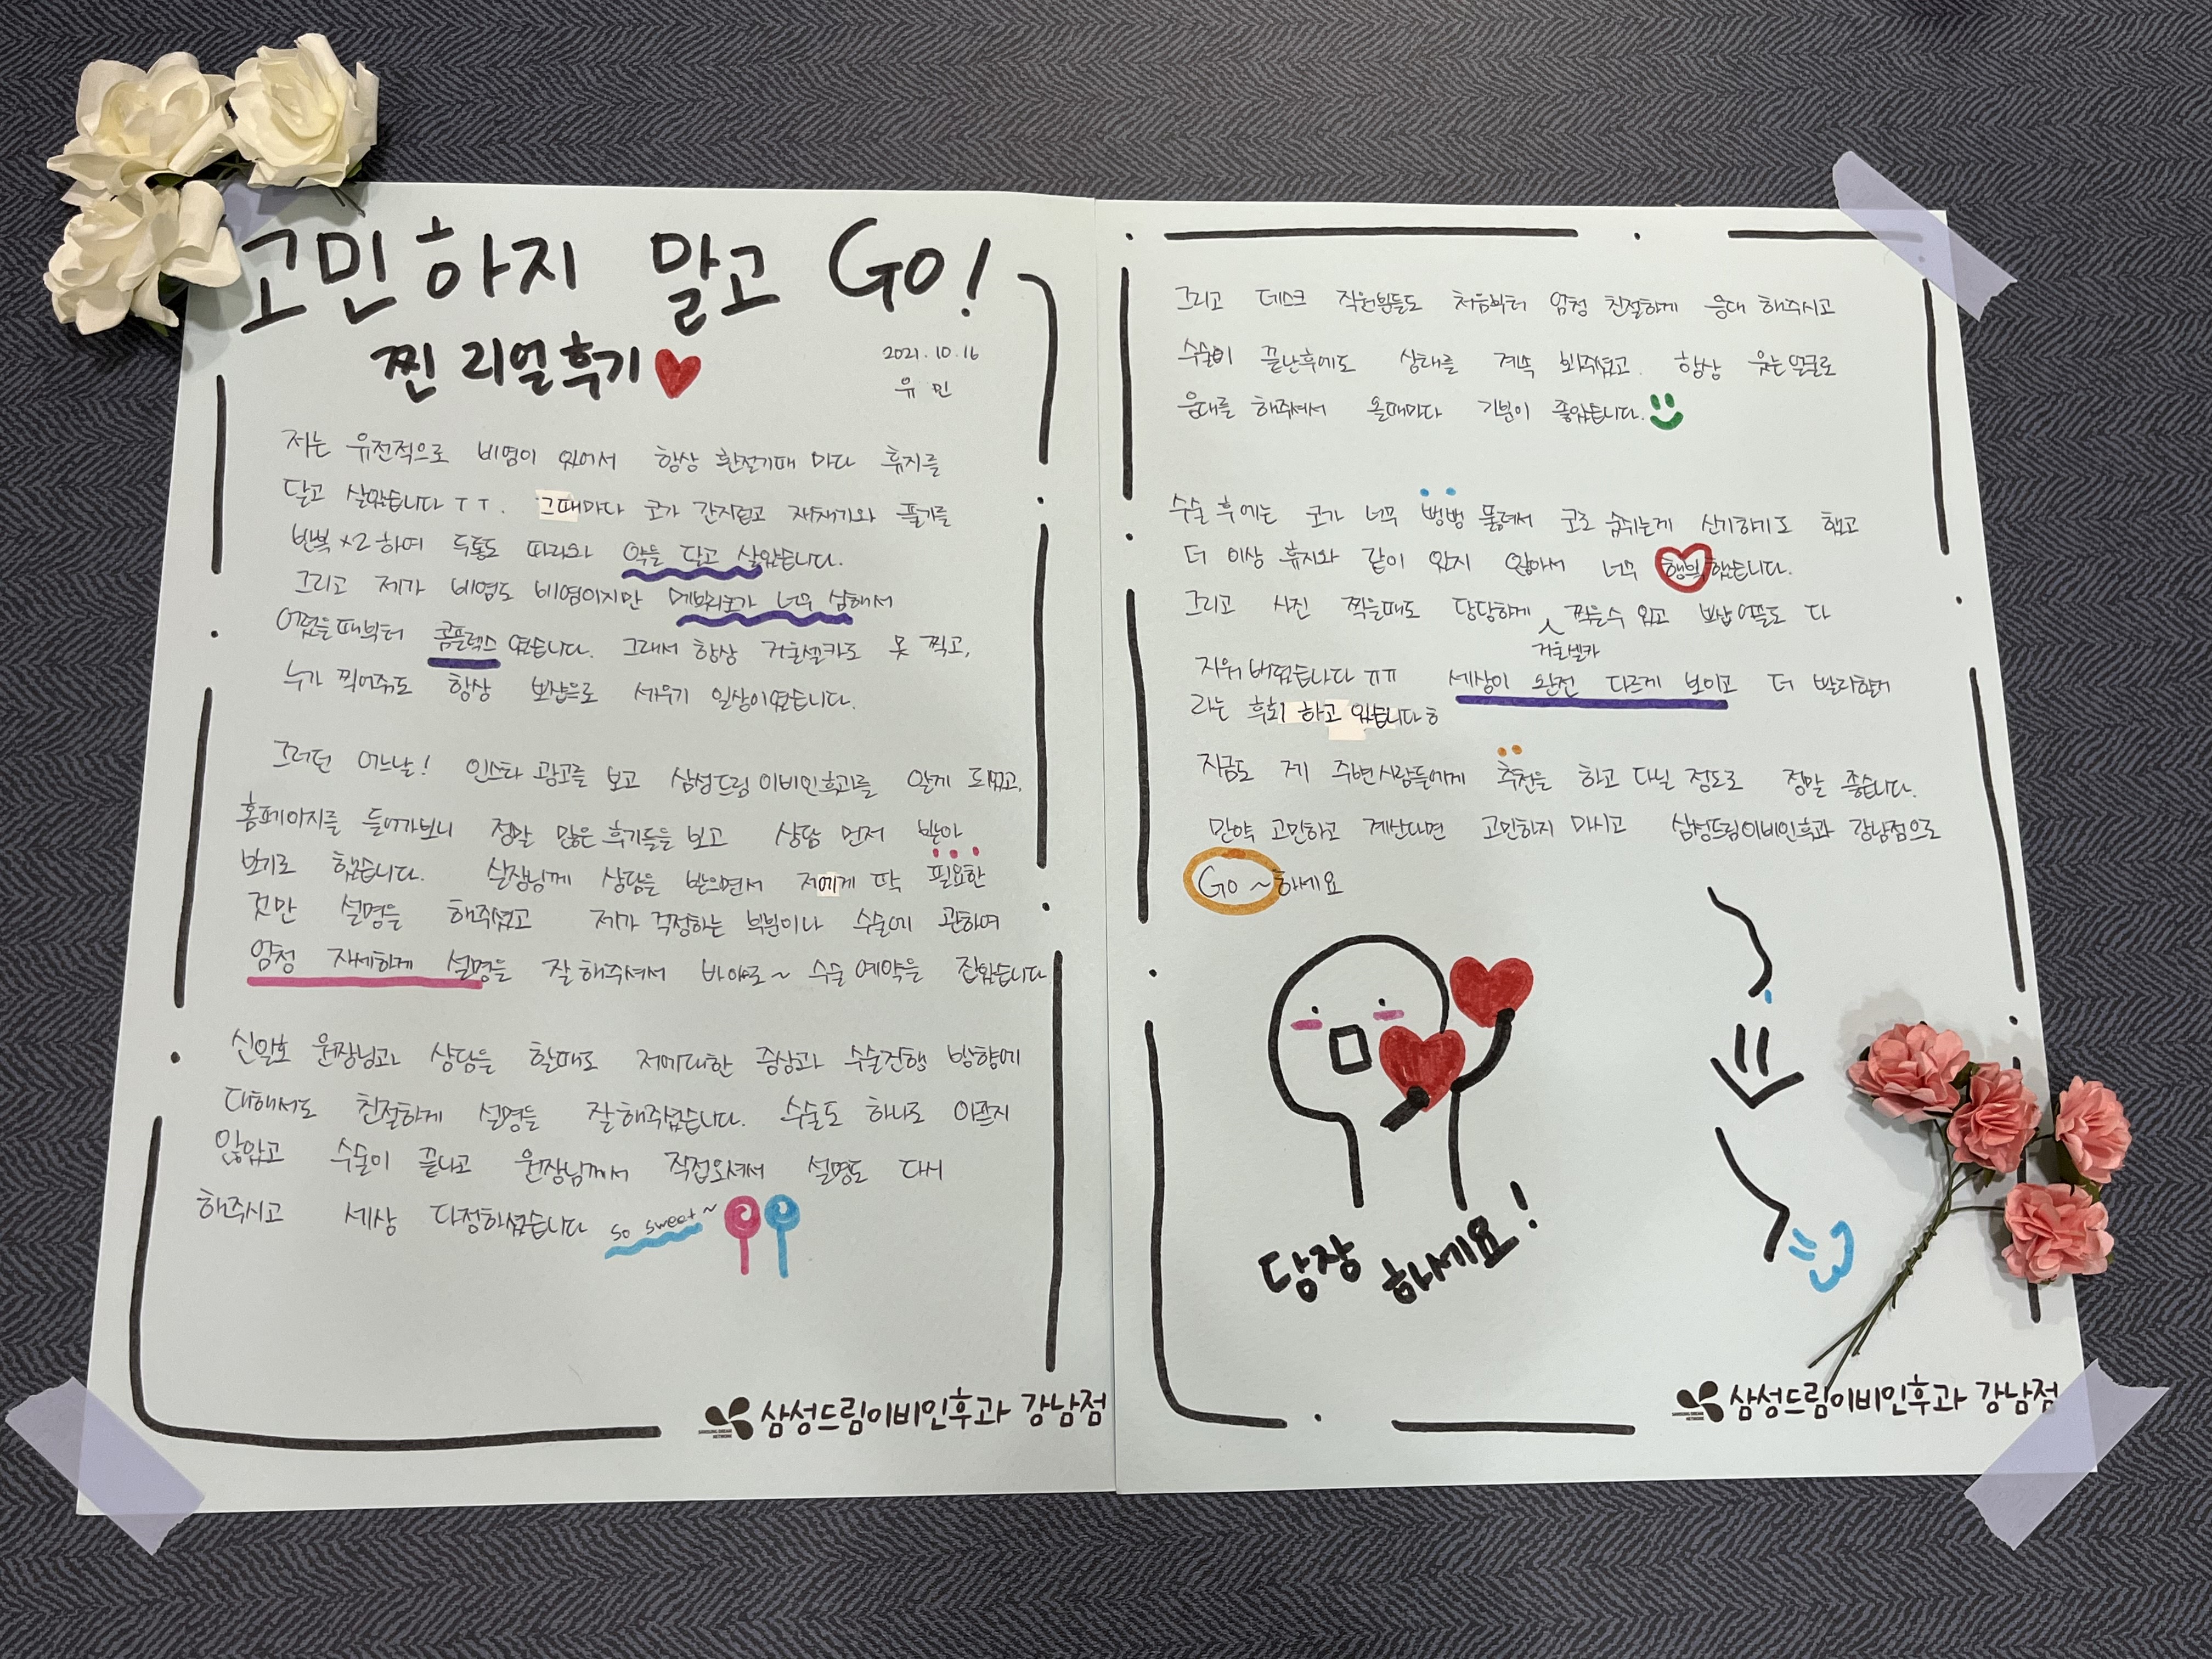 고민하지 말고 Go!
찐 리얼후기
2021.10.16
유민
저는 유전적으로 비염이 있어서 항상 환절기때 마다 휴지를
달고 살았습니다 ㅜㅜ. 그때마다 코가 간지럽고 재채기와 풀기를
반복 x2 하여 두통도 따라와 약을 달고 살았습니다.
그리고 제가 비염도 비염이지만 메부리코가 너무 심해서
어렸을때부터 콤플렉스 였습니다. 그래서 항상 거울셀카도 못 찍고,
누가 찍어줘도 항상 보샵으로 세우기 일상이였습니다.
그러던 어느날! 인스타 광고를 보고 삼성드림이비인후과를 알게 되었고,
홈페이지를 들어가보니 정말 많은 후기들을 보고 상담 먼저 받아
보기로 했습니다. 실장님께 상담을 받으면서 저에게 딱 필요한
것만 설명을 해주셨고 제가 걱정하는 부분이나 수술에 관하여
엄청 자세하게 설명을 잘 해주셔서 바아로~ 수술 예약을 잡았습니다
신일호 원장님과 상담을 할때도 저에대한 증상과 수술진행 방향에
대해서도 친절하게 설명을 잘해주셨습니다. 수술도 하나도 아프지
않았고 수술이 끝나고 원장님께서 직접오셔서 설명도 다시
해주시고 세상 다정하셨습니다 so sweet~
삼성드림이비인후과 강남점
그리고 데스크 직원분들도 처음부터 엄청 친절하게 응대 해주시고
수술이 끝난후에도 상태를 계속 봐주셨고. 항상 웃는얼굴로
응대를 해주셔서 올때마다 기분이 좋았습니다.
수술 후에는 코가 너무 뻥뻥 뚫려서 코로 숨쉬는게 신기하기도 했고
더 이상 휴지와 같이 있지 않아서 너무 행복했습니다.
그리고 사진 찍을때도 당당하게 찍을수 있고 보샵 어플도 다
거울셀카
지워버렸습니다 ㅠㅠ 세상이 완전 다르게 보이고 더 빨리할걸
라는 후회 하고 있습니다ㅎ
지금도 제 주변사람들에게 추천을 하고 다닐 정도로 정말 좋습니다.
만약 고민하고 계신다면 고민하지 마시고 삼성드림이비인후과 강남점으로
Go~하세요
당장 하세요!
삼성드림이비인후과 강남점